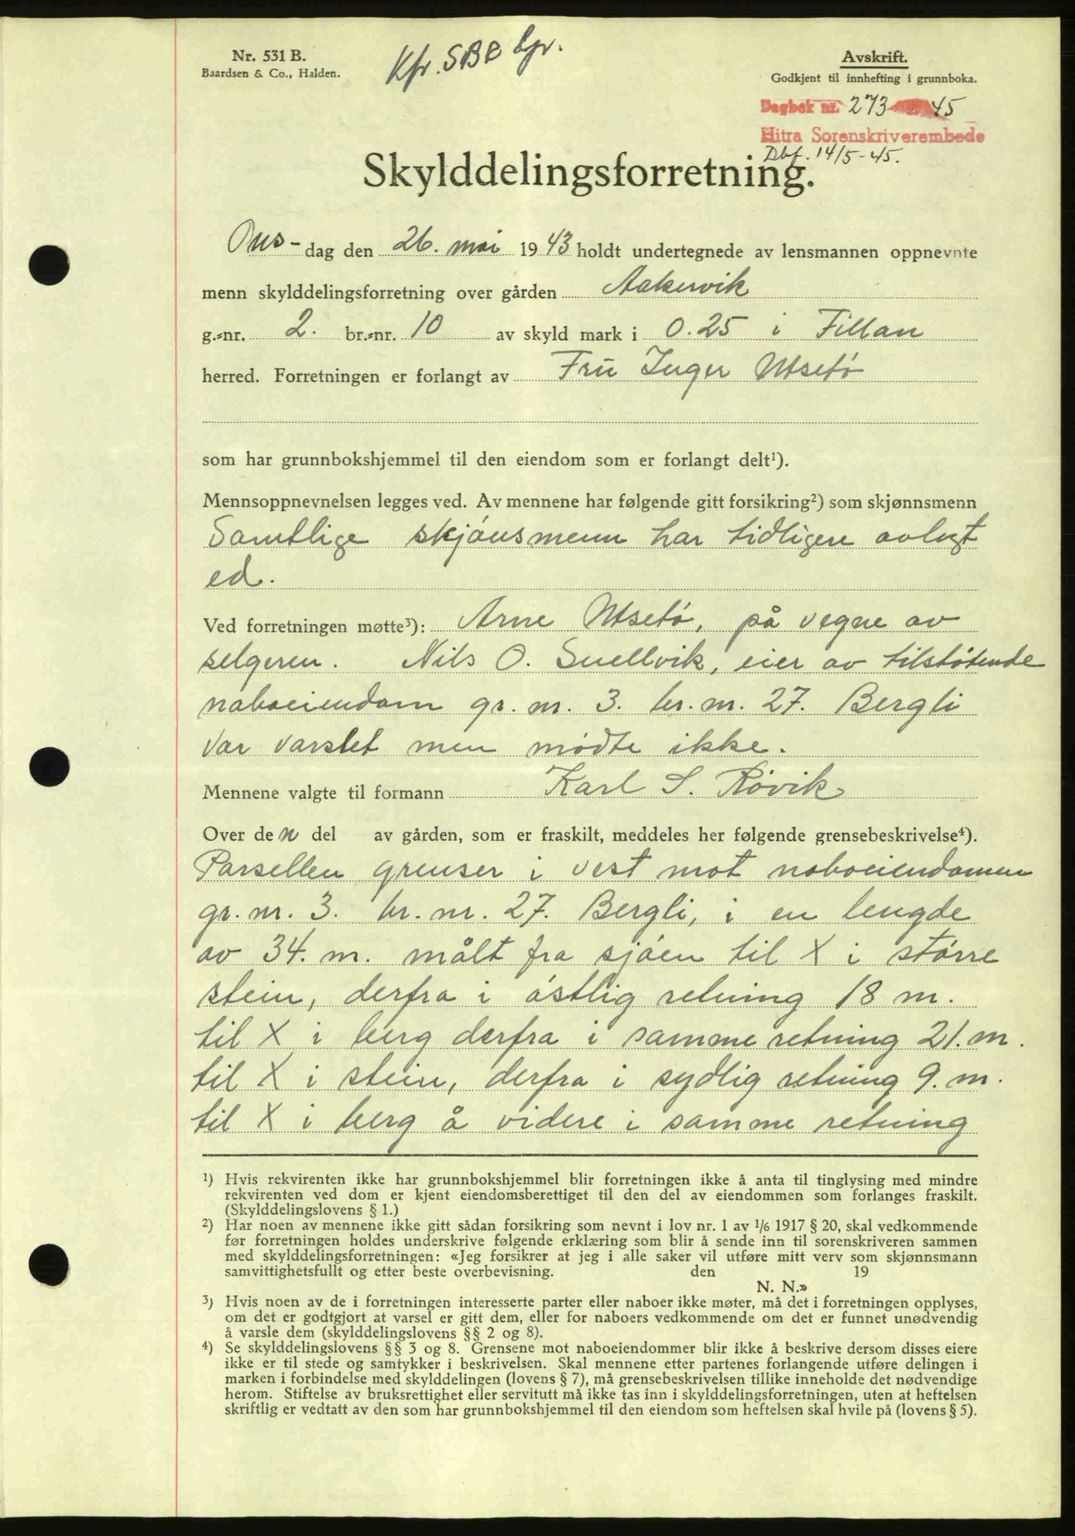 Nr. 531 B.
Baardsen & Co., Halden.
Kfr. SBB bjr.
Avskrift.
Godkjent til innhefting i grunnboka.
Dagbok nr. 273 45
Hitra Sorenskriverembede
Dbf. 14/5-45.
Skylddelingsforretning.
Ons-dag den 26. mai 1943 holdt undertegnede av lensmannen oppnevnte
menn skylddelingsforretning over gården Aakervik
g.-nr. 2. br.-nr. 10 av skyld mark i 0.25 i Fillan
herred. Forretningen er forlangt av Fru Inger Utsetø
som har grunnbokshjemmel til den eiendom som er forlangt delt¹).
Mennsoppnevnelsen legges ved. Av mennene har følgende gitt forsikring²) som skjønnsmenn
Samtlige skjønsmenn har tidligere avlagt
ed.
Ved forretningen møtte³): Arne Utsetø, på vegne av
selgeren. Nils O. Snellvik, eier av tilstøtende
naboeiendom gr. nr. 3. br. nr. 27. Bergli
var varslet men mødte ikke.
Mennene valgte til formann Karl S. Røvik
Over den del av gården, som er fraskilt, meddeles her følgende grensebeskrivelse⁴).
Parsellen grenser i vest mot naboeiendomen
gr. nr. 3. br. nr. 27. Bergli, i en lengde
av 34. m. målt fra sjøen til X i større
stein, derfra i østlig retning 18 m.
til X i berg derfra i samme retning 21. m.
til X i stein, derfra i sydlig retning 9. m.
til X i berg å videre i samme retning
¹) Hvis rekvirenten ikke har grunnbokshjemmel blir forretningen ikke å anta til tinglysing med mindre
rekvirenten ved dom er kjent eiendomsberettiget til den del av eiendommen som forlanges fraskilt.
(Skylddelingslovens § 1.)
²) Har noen av mennene ikke gitt sådan forsikring som nevnt i lov nr. 1 av 1/6 1917 § 20, skal vedkommende
før forretningen holdes underskrive følgende erklæring som blir å sende inn til sorenskriveren sammen
med skylddelingsforretningen: «Jeg forsikrer at jeg i alle saker vil utføre mitt verv som skjønnsmann
samvittighetsfullt og etter beste overbevisning. den 19
N. N.»
³) Hvis noen av de i forretningen interesserte parter eller naboer ikke møter, må det i forretningen opplyses,
om det er godtgjort at varsel er gitt dem, eller for naboers vedkommende om det er funnet unødvendig
å varsle dem (skylddelingslovens §§ 2 og 8).
⁴) Se skylddelingslovens §§ 3 og 8. Grensene mot naboeiendommer blir ikke å beskrive dersom disses eiere
ikke er til stede og samtykker i beskrivelsen. Skal mennene etter partenes forlangende utføre delingen i
marken i forbindelse med skylddelingen (lovens § 7), må grensebeskrivelsen tillike inneholde det nødvendige
herom. Stiftelse av bruksrettighet eller servitutt må ikke tas inn i skylddelingsforretningen, uten at heftelsen
skriftlig er vedtatt av den som har grunnbokshjemmel til den eiendom som heftelsen skal hvile på (lovens § 5).